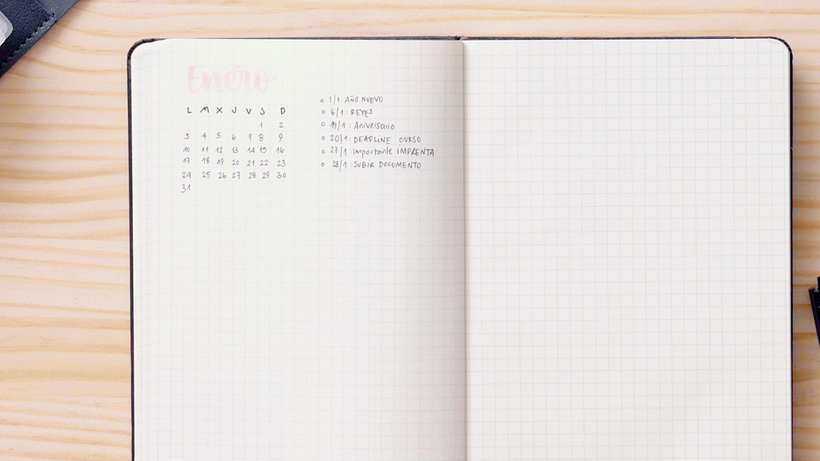 Enero
L M X J V S D
1 2
3 4 5 6 7 8 9
10 11 12 13 14 15 16
17 18 19 20 21 22 23
24 25 26 27 28 29 30
31
1/1: AÑO NUEVO
6/1: REYES
: Aniversario
20/1: DEADLINE CURSO
27/1: Importante IMPRENTA
28/1: SUBIR DOCUMENTO